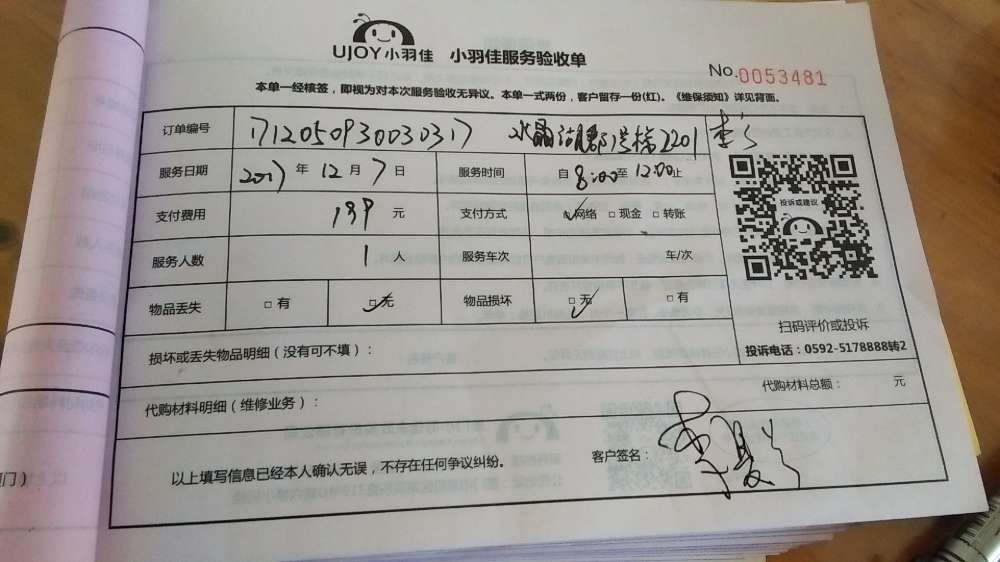 UJOY小羽佳 小羽佳服务验收单
No.0053481
本单一经核签，即视为对本次服务验收无异议。本单一式两份，客户留存一份(红)。《维保须知》详见背面。
订单编号 1712050930030317 水晶湖郡 2201
服务日期 2017年12月7日 服务时间 自8:00至12:00止
支付费用 139元 支付方式 网络 现金 转账
投诉或建议
服务人数 1人 服务车次 车/次
物品丢失 有 无 物品损坏 无 有
扫码评价或投诉
投诉电话：0592-5178888转2
损坏或丢失物品明细（没有可不填）：
代购材料明细（维修业务）： 代购材料总额： 元
以上填写信息已经本人确认无误，不存在任何争议纠纷。 客户签名：
门）